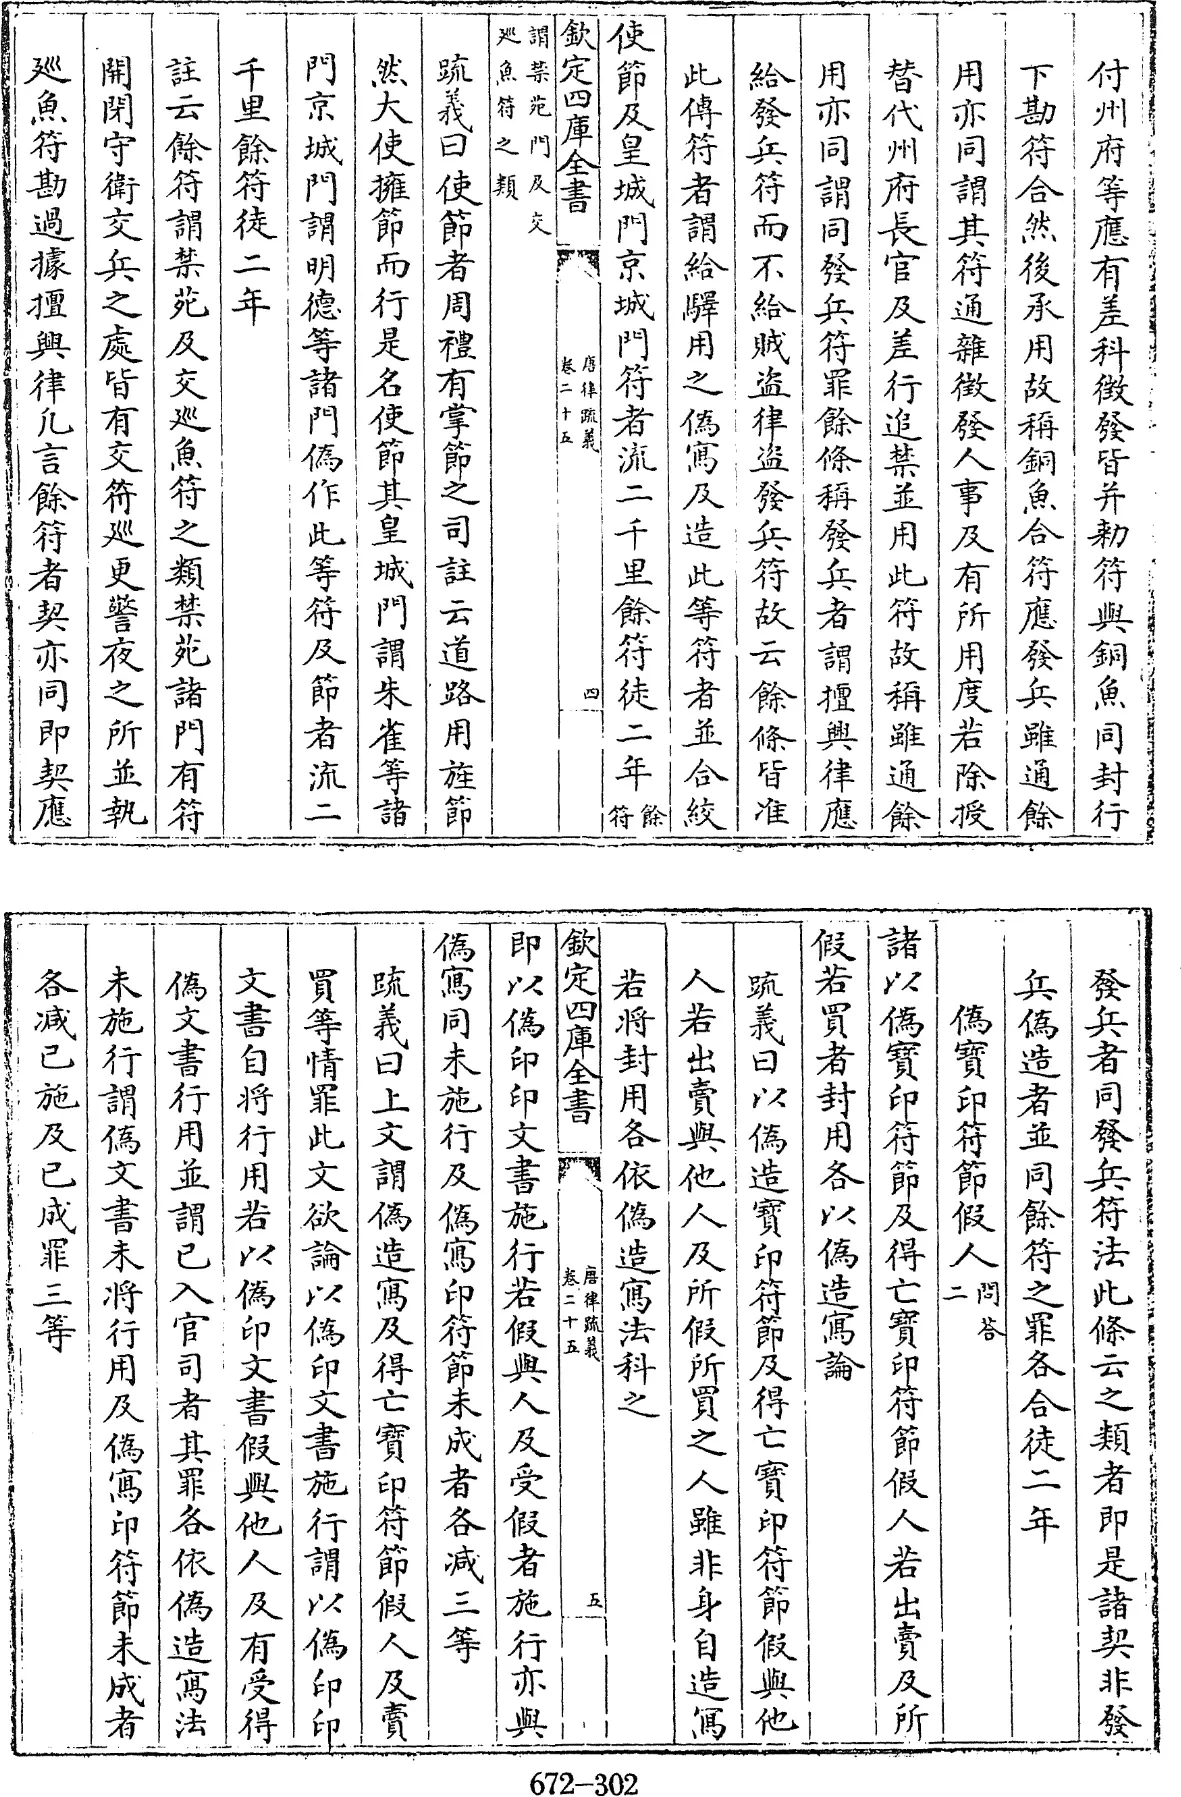 付州府等應有差科徴發皆并勅符與銅魚同封行
下勘符合然後承用故稱銅魚合符應發兵雖通餘
用亦同謂其符通雜徴發人事及有所用度若除授
替代州府長官及差行追禁並用此符故稱雖通餘
用亦同謂同發兵符罪餘條稱發兵者謂擅興律應
給發兵符而不給賊盜律盜發兵符故云餘條皆准
此傳符者謂給驛用之偽寫及造此等符者並合絞
使節及皇城門京城門符者流二千里餘符徒二年餘符
欽定四庫全書
唐律疏義
卷二十五
四
謂禁苑門及交
巡魚符之類
疏義曰使節者周禮有掌節之司註云道路用旌節
然大使擁節而行是名使節其皇城門謂朱雀等諸
門京城門謂明德等諸門偽作此等符及節者流二
千里餘符徒二年
註云餘符謂禁苑及交巡魚符之類禁苑諸門有符
開閉守衛交兵之處皆有交符巡更警夜之所並執
巡魚符勘過據擅興律凡言餘符者契亦同即契應
發兵者同發兵符法此條云之類者即是諸契非發
兵偽造者並同餘符之罪各合徒二年
偽寶印符節假人問答二
諸以偽寶印符節及得亡寶印符節假人若出賣及所
假若買者封用各以偽造寫論
疏義曰以偽造寶印符節及得亡寶印符節假與他
人若出賣與他人及所假所買之人雖非身自造寫
若將封用各依偽造寫法科之
欽定四庫全書
唐律疏義
卷二十五
五
即以偽印印文書施行若假與人及受假者施行亦與
偽寫同未施行及偽寫印符節未成者各减三等
疏義曰上文謂偽造寫及得亡寶印符節假人及賣
買等情罪此文欲論以偽印文書施行謂以偽印印
文書自將行用若以偽印文書假與他人及有受得
偽文書行用並謂已入官司者其罪各依偽造寫法
未施行謂偽文書未將行用及偽寫印符節未成者
各减已施及已成罪三等
672-302